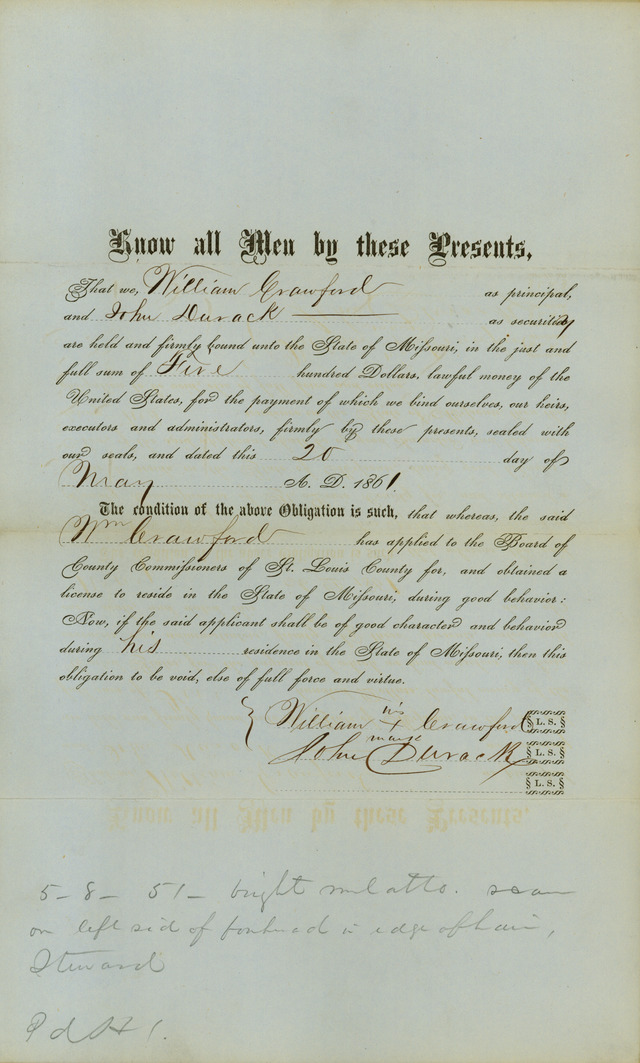 Know all Men by these Presents,
That we, William Crawford as principal,
and John Durack as security
are held and firmly bound unto the State of Missouri, in the just and
full sum of Five hundred Dollars, lawful money of the
United States, for the payment of which we bind ourselves, our heirs,
executors and administrators, firmly by these presents, sealed with
our seals, and dated this 20 day of
May A. D. 1861.
The condition of the above Obligation is such, that whereas, the said
Wm Crawford has applied to the Board of
County Commissioners of St. Louis County for, and obtained a
license to reside in the State of Missouri, during good behavior:
Now, if the said applicant shall be of good character and behavior
during his residence in the State of Missouri, then this
obligation to be void, else of full force and virtue.
his
William + Crawford L. S.
mark
John Durack L. S.
L. S.
5-8- 51- bright mulatto. scar
on left sid of forhead in edge of hair,
Steward